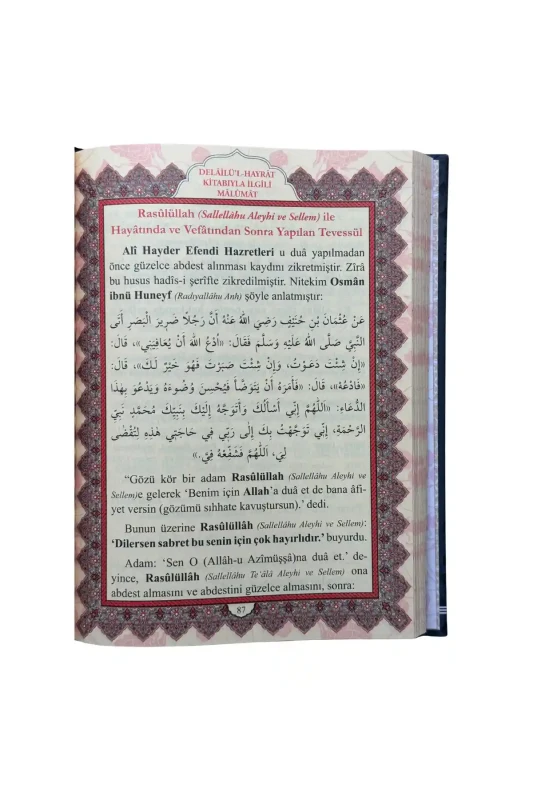 DELÂİLÜ'L-HAYRÂT
KİTABIYLA İLGİLİ
MÂLÛMÂT
Rasûlüllah (Sallellâhu Aleyhi ve Sellem) ile
Hayâtında ve Vefâtından Sonra Yapılan Tevessül
Alî Hayder Efendi Hazretleri u duâ yapılmadan
önce güzelce abdest alınması kaydını zikretmiştir. Zîrâ
bu husus hadîs-i şerîfte zikredilmiştir. Nitekim Osmân
ibnü Huneyf (Radıyallâhu Anh) şöyle anlatmıştır:
عَنْ عُثْمَانَ بْنِ حُنَيْفٍ رَضِيَ اللهُ عَنْهُ أَنَّ رَجُلًا ضَرِيرَ الْبَصَرِ أَتَى
النَّبِيَّ صَلَّى اللهُ عَلَيْهِ وَسَلَّمَ فَقَالَ: «اُدْعُ اللهَ أَنْ يُعَافِيَنِي»، قَالَ:
«إِنْ شِئْتَ دَعَوْتُ، وَإِنْ شِئْتَ صَبَرْتَ فَهُوَ خَيْرٌ لَكَ»، قَالَ:
«فَادْعُهُ»، قَالَ: «فَأَمَرَهُ أَنْ يَتَوَضَّأَ فَيُحْسِنَ وُضُوءَهُ وَيَدْعُوَ بِهٰذَا
الدُّعَاءِ: «اَللّٰهُمَّ إِنِّي أَسْأَلُكَ وَأَتَوَجَّهُ إِلَيْكَ بِنَبِيِّكَ مُحَمَّدٍ نَبِيِّ
الرَّحْمَةِ، إِنِّي تَوَجَّهْتُ بِكَ إِلَى رَبِّي فِي حَاجَتِي هٰذِهِ لِتُقْضَى
لِي، اَللّٰهُمَّ فَشَفِّعْهُ فِيَّ.»
“Gözü kör bir adam Rasûlüllah (Sallellâhu Aleyhi ve
Sellem)e gelerek ‘Benim için Allah'a duâ et de bana âfi-
yet versin (gözümü sıhhate kavuştursun).’ dedi.
Bunun üzerine Rasûlüllâh (Sallellâhu Aleyhi ve Sellem):
‘Dilersen sabret bu senin için çok hayırlıdır.’ buyurdu.
Adam: ‘Sen O (Allâh-u Azîmüşşâ)na duâ et.’ de-
yince, Rasûlüllâh (Sallellâhu Te'âlâ Aleyhi ve Sellem) ona
abdest almasını ve abdestini güzelce almasını, sonra:
87